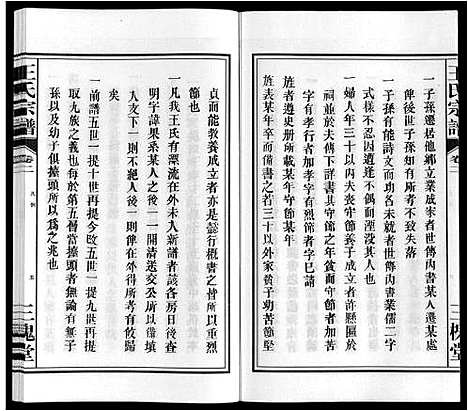 王氏宗譜
卷二
三槐堂
一子孫遷居他鄉立業成家者世傳內書某人遷某處
俾後世子孫知有所考不致失落
一子孫有能詩文而功名未就者世傳內書業儒二字
式樣不忍因遺逢不偶而湮沒其人也
一婦人年三十以內夫喪守節養子成立者許懸匾於
祠並於夫傳下識其守節之年貧而守節者書守節某
字有孝行者加孝字有烈節者字已請
旌者遵史册所載書守節某
旌表者一例備書之若三十以外家貧子幼苦節堅
貞而能教養成立者亦是懿行概書之世傳內書某氏守
節也
一凡我王氏有漂流在外未入新譜者該各房日後查
明字諱果系某人之後一一開清送交公所以備填
入支下一則不致混收在外得所考有攸歸
矣
一前譜五世一提十世今改五世一提九世再提
取九族之義也至於第五層當擡頭者無論有無子
孫以及幼子俱擡頭所以爲之兆也
王氏宗譜
卷二
凡例
五
三槐堂